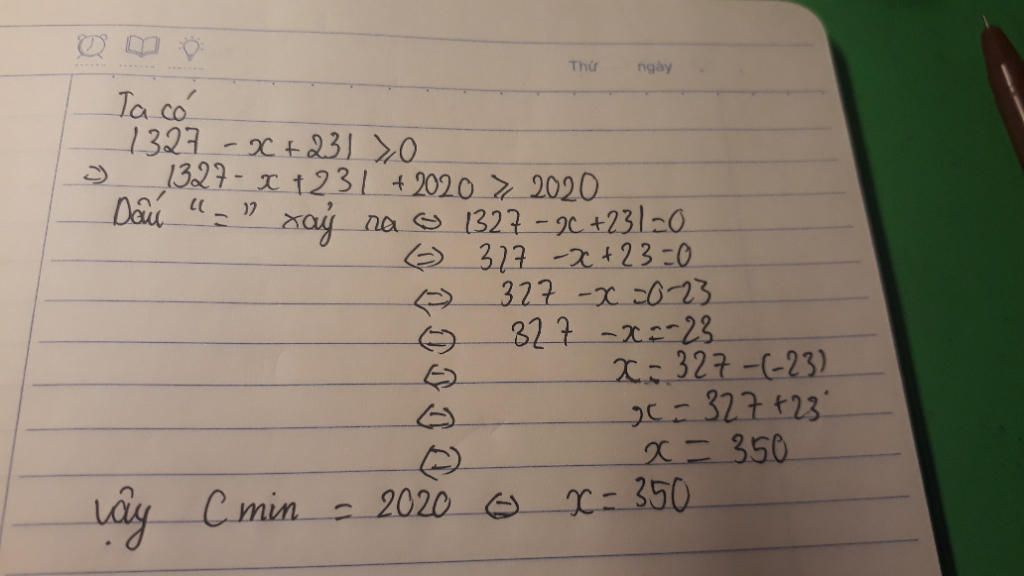 Thứ ngày
Ta có
|327 - x + 23| ⩾ 0
=> |327 - x + 23| + 2020 ⩾ 2020
Dấu "=" xảy ra <=> |327 - x + 23| = 0
<=> 327 - x + 23 = 0
<=> 327 - x = 0 - 23
<=> 327 - x = -23
<=> x = 327 - (-23)
<=> x = 327 + 23
<=> x = 350
Vậy C min = 2020 <=> x = 350